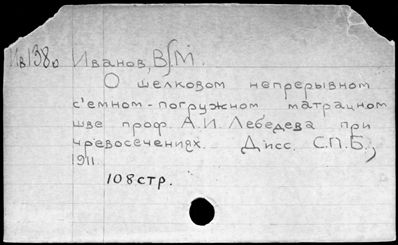 Ив138о Иванов, В.М.
О шелковом непрерывном
с'емном-погружном матрацном
шве проф. А.И. Лебедева при
чревосечениях. Дисс. С.П.Б.,
1911.
108стр.